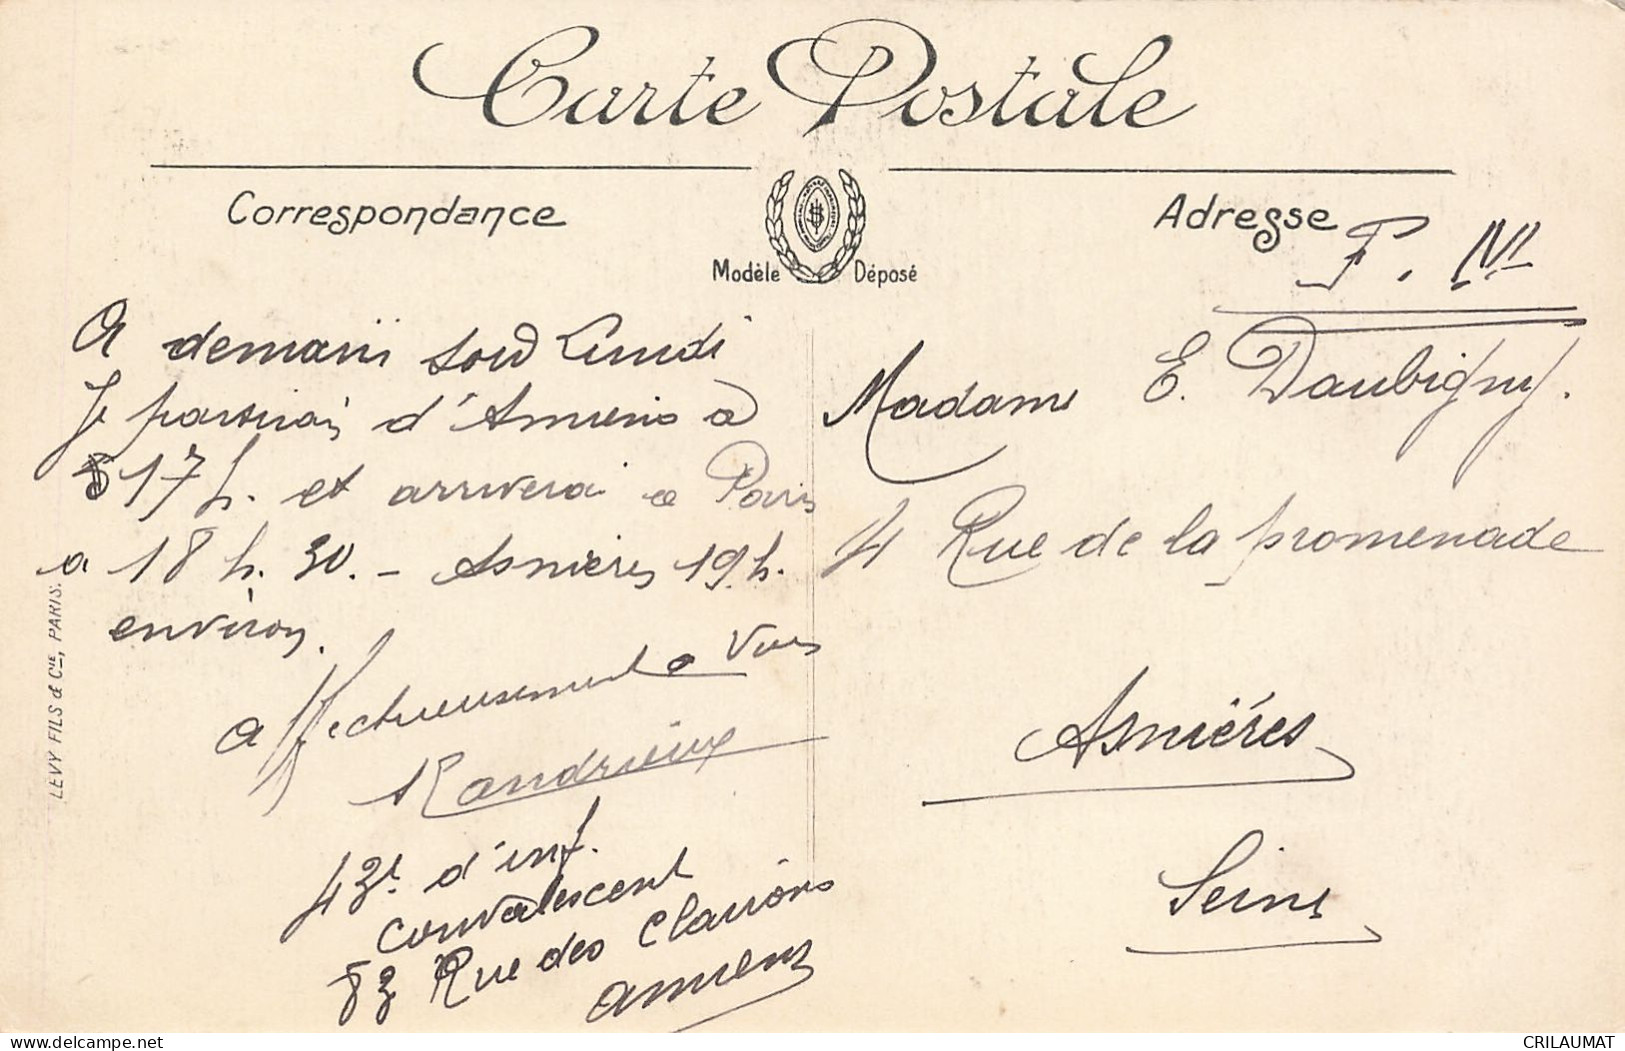 Carte Postale
Correspondance
Modèle Déposé
Adresse
F. M
A demain soir Lundi
Je partirai d'Amiens a
17 h. et arriverai a Paris
a 18 h. 30. - Asnières 19 h.
environ.
affectueusement a vous
Randrieux
43e d'inf.
convalescent
83 Rue des Clairons
Amiens
Madame E. Daubigny.
4 Rue de la promenade
Asnières
Seine
LEVY FILS & Cie, PARIS.
delcampe.net
CRILAUMAT